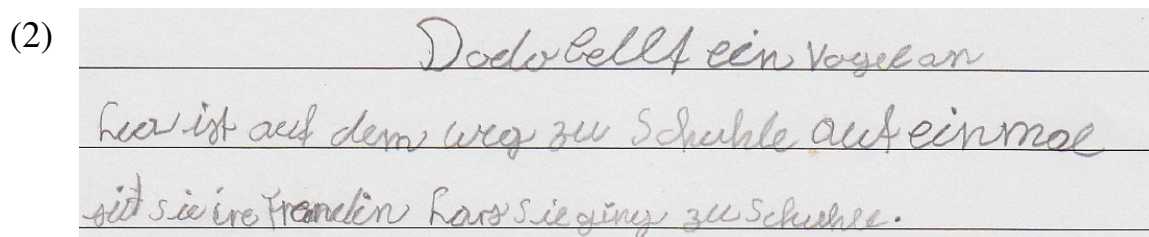 (2) Dodo bellt ein Vogel an
Lea ist auf dem weg zu Schuhle auf einmal
sit sie ire sie ging zu Schuhle.